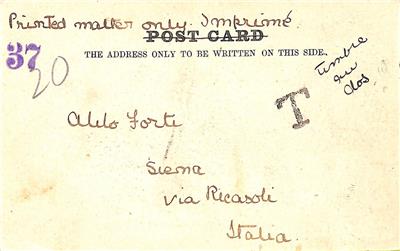 Printed matter only. Imprimé
POST CARD
THE ADDRESS ONLY TO BE WRITTEN ON THIS SIDE.
37
20
timbre
au
dos
T
Aldo Forti
Siena
Via Ricasoli
Italia.